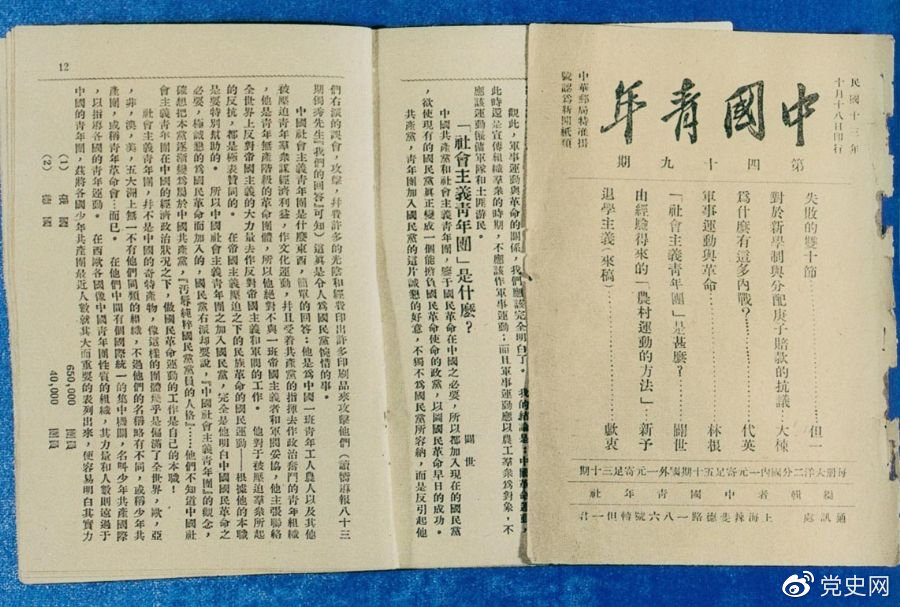 民國十三年
十月十八日印行
中國青年
中華郵局特准掛
號認爲新聞紙類
第四十九期
失敗的雙十節………但一
對於新學制與分配庚子賠款的抗議…大楝
爲什麽有這多內戰?………代英
軍事運動與革命………林根
「社會主義青年團」是甚麽?………闢世
由經驗得來的「農村運動的方法」…新予
退學主義(來稿)………歉衷
每册大洋二分國內一元寄足五十期國外一元寄足三十期
編輯者中國青年社
通訊處 上海辣斐德路一八六號轉但一君
觀此,軍事運動與革命的關係,我們應該完全明白了。 我的結論是:中國革命運動,
此時還是宣傳組織羣衆的時期,不應該作軍事運動;而且軍事運動應以農工羣衆爲對象,不
應該運動僱傭軍隊和土匪游民。
「社會主義青年團」是什麽?
闢世
中國共產黨和社會主義青年團,鑒于國民革命在中國之必要,所以都加入現在的國民黨
,欲使現有的國民黨眞正變成一個能擔負國民革命使命的政黨,以圖國民革命早日的成功。
共產黨,青年團加入國民黨的這片誠懇的好意,不獨不爲國民黨所容納,而是反引起他
12
們右派的誤會,攻擊,幷費許多的光陰和經費印出許多印刷品來攻擊他們(讀嚮導報八十三
期獨秀先生『我們的回答』可知)這眞是令人爲國民黨惋惜的事。
中國社會主義青年團是什麽東西,簡單的回答:他是爲中國一班青年工人農人以及其他
被壓迫青年羣衆謀經濟利益,作文化運動,幷且受着共產黨的指揮去作政治奮鬥的青年組織
,他是青年無產階級的革命團體,所以他絕對不與一班帝國主義者和軍閥妥協,他主張聯絡
全世界上反對帝國主義的大力量去作反對帝國主義和軍閥的工作。 他對于被壓迫羣衆所起
的反抗,都是極表贊同的。 在帝國主義壓迫之下的民族革命的國民運動——根據他的本職
是要特別幫助的。 所以中國社會主義青年團之加入國民黨,完全是他明白中國國民革命之
必要,極誠懇的爲國民革命而加入的,國民黨右派却要說,『中國社會主義青年團』的觀念,
確想把本黨逐漸變爲屬於中國共產黨,『汚辱純粹國民黨黨員的人格』……他們不知道中國社
會主義青年團在中國的經濟政治狀況之下,做國民革命運動的工作是自己的本職!
社會主義青年團,幷不是中國的奇特產物,像這樣的團體幾乎是偏滿了全世界,歐,亞
,非,澳,美,五大洲上無一不有他們同類的組織,不過他們的名稱略有不同,或稱少年共
產團,或稱青年革命會…而已。 在他們中間有個國際統一的集中機關,名呌少年共產國際
,以指導各國的青年運動。 在西歐各國像中國青年團性質的組織,其力量和人數則遠過于
中國的青年團,茲將各國少年共產團最近人數就其大而重要的表列出來,便容易明白其實力
(1) 俄國 650,000 團員
(2) 德國 40,000 團員
党史网